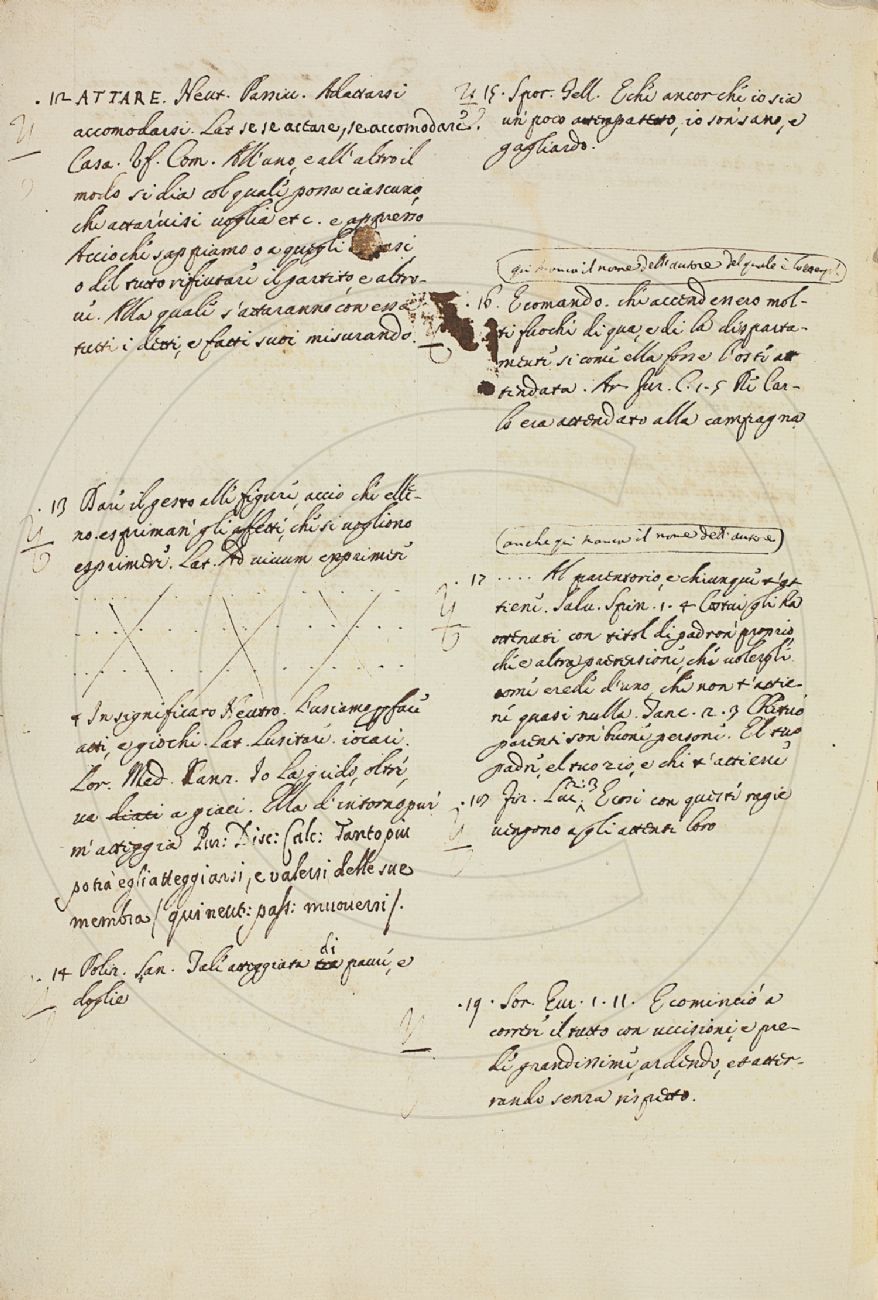 12 ATTARE. Neut. Passiv. Adattarsi
accomodarsi. Lat. se se aptare, se accomodare.
Casa. Uf. Com. All'uno, e all'altro il
modo si dia col quale possa ciascuno,
che attarvisi voglia etc. e appresso
Acciochè sappiamo o a quegli
o del tutto rifiutare il partito e altro-
ve. Alla quale s'attaranno con essa
tutti i detti, e fatti suoi misurando.
13 Dare il gesto alle figure, acciò che elle-
no esprimano gli affetti, che si vogliono
esprimere. Lat. Ad vivum exprimere
+ In significato Neutro. Lusiamo, fare
atti, e giochi. Lat. Lusitare. iocari.
Lor. Med. Canz. Io la guido, oltre,
va a giace. Ella d'intorno pur
m'atteggia Disc: Calc: Tanto più
potrà egli atteggiarsi, e valersi delle sue
membra / qui neut: pass: muoversi /.
14 Poliz. San. Tale atteggiata di paure, e
doglie
15. Spor. Gell. E che ancor chè io sia
un poco attempatetto, io son sano, e
gagliardo.
qui manca il nome dell'autore del quale è l'esemp.
16. E comandò. che accendenero mol-
ti fuochi di qua, e di là disparta-
mente si come ella fosse l'oste at
tendata. Ar. Fur. C. 1. 5 Re Car-
lo era attendato alla campagna
anche qui manca il nome dell'autore
17 .... Al parentorio, e chiunque t'at
tiene. Salv. Spin. 1. 4 Costui gli ha
ottenati con titol di padron' proprio
che altra pretensione, che volergli
come eredi d'uno, che non t'attie-
ne quasi nulla. Tanc. 2. 3 Chi tuo
parenti son buone persone. El tuo
padre, el tuo zio, e chi t'attiene
18 Fir. Luc. 2. 3 E così con queste ragie
vengono agli attenti loro
19. Gior. Eur. 1. 11. E cominciò a
correre il tutto con uccisioni, e pre-
de grandissime, ardendo, et atter-
rando senza rispetto.